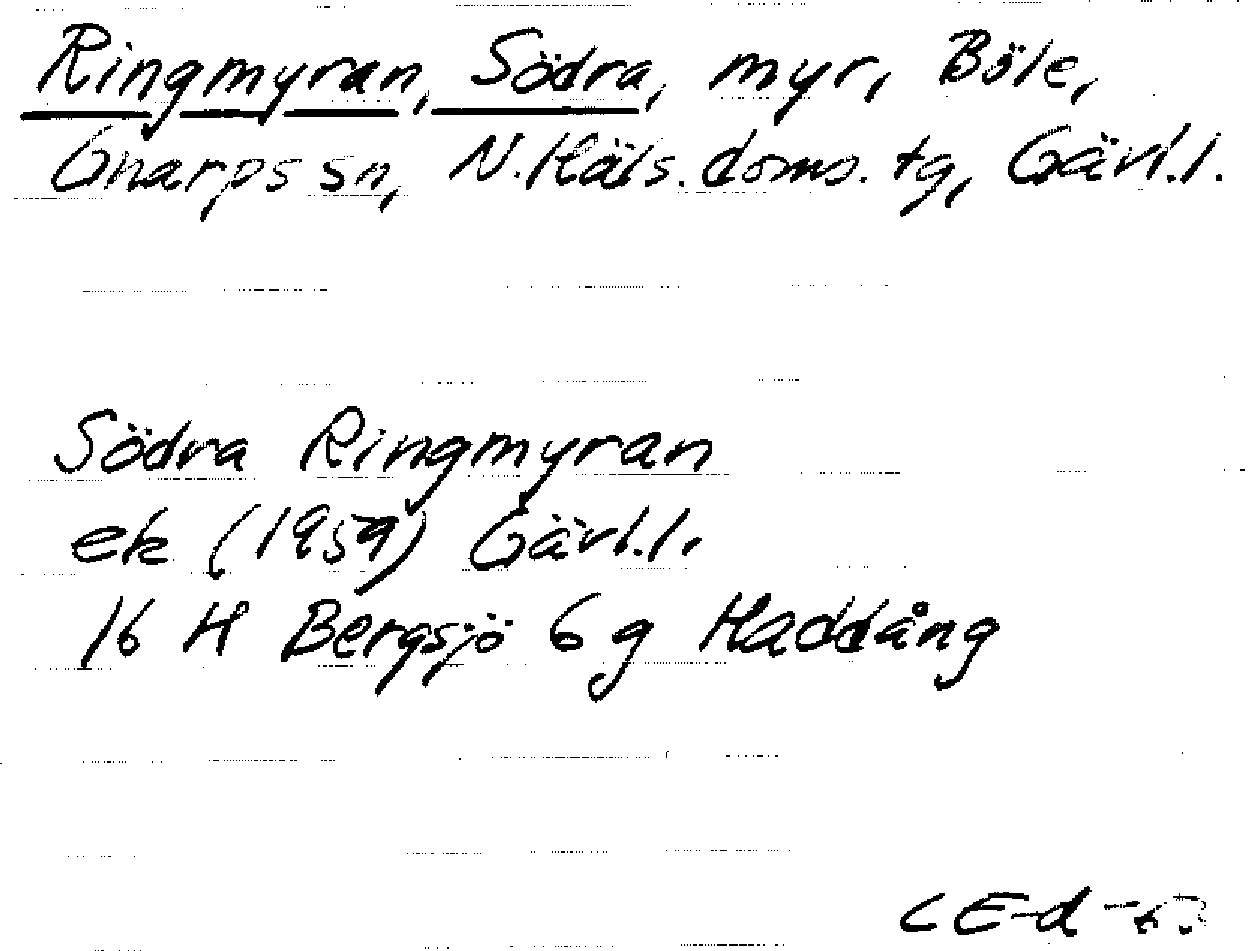 Ringmyran, Södra, myr, Böle,
Gnarps sn, N. Häls. doms. tg, Gävl.l.
Södra Ringmyran
ek (1959) Gävl.l.
16 H Bergsjö 6 g Haddång
CE-d-63